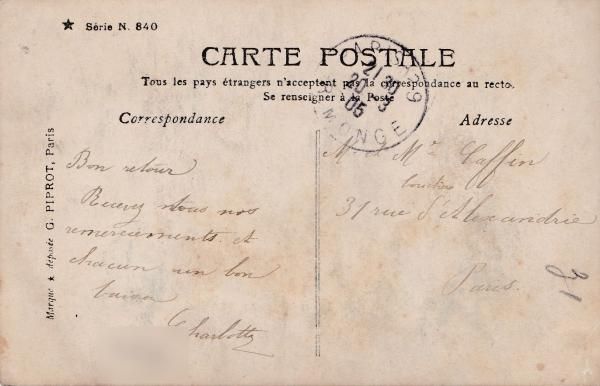 ★ Série N. 840
CARTE POSTALE
Tous les pays étrangers n'acceptent pas la correspondance au recto.
Se renseigner à la Poste
Correspondance
Adresse
Marque ★ déposée G. PIPROT, Paris
PARIS 29
21 30
20 3
05
R. MONGE
Bon retour
Recevez tous nos
remerciements et
chacun un bon
baiser
Charlotte
M. et Mme Caffin
31 rue d'Alexandrie
Paris.
31